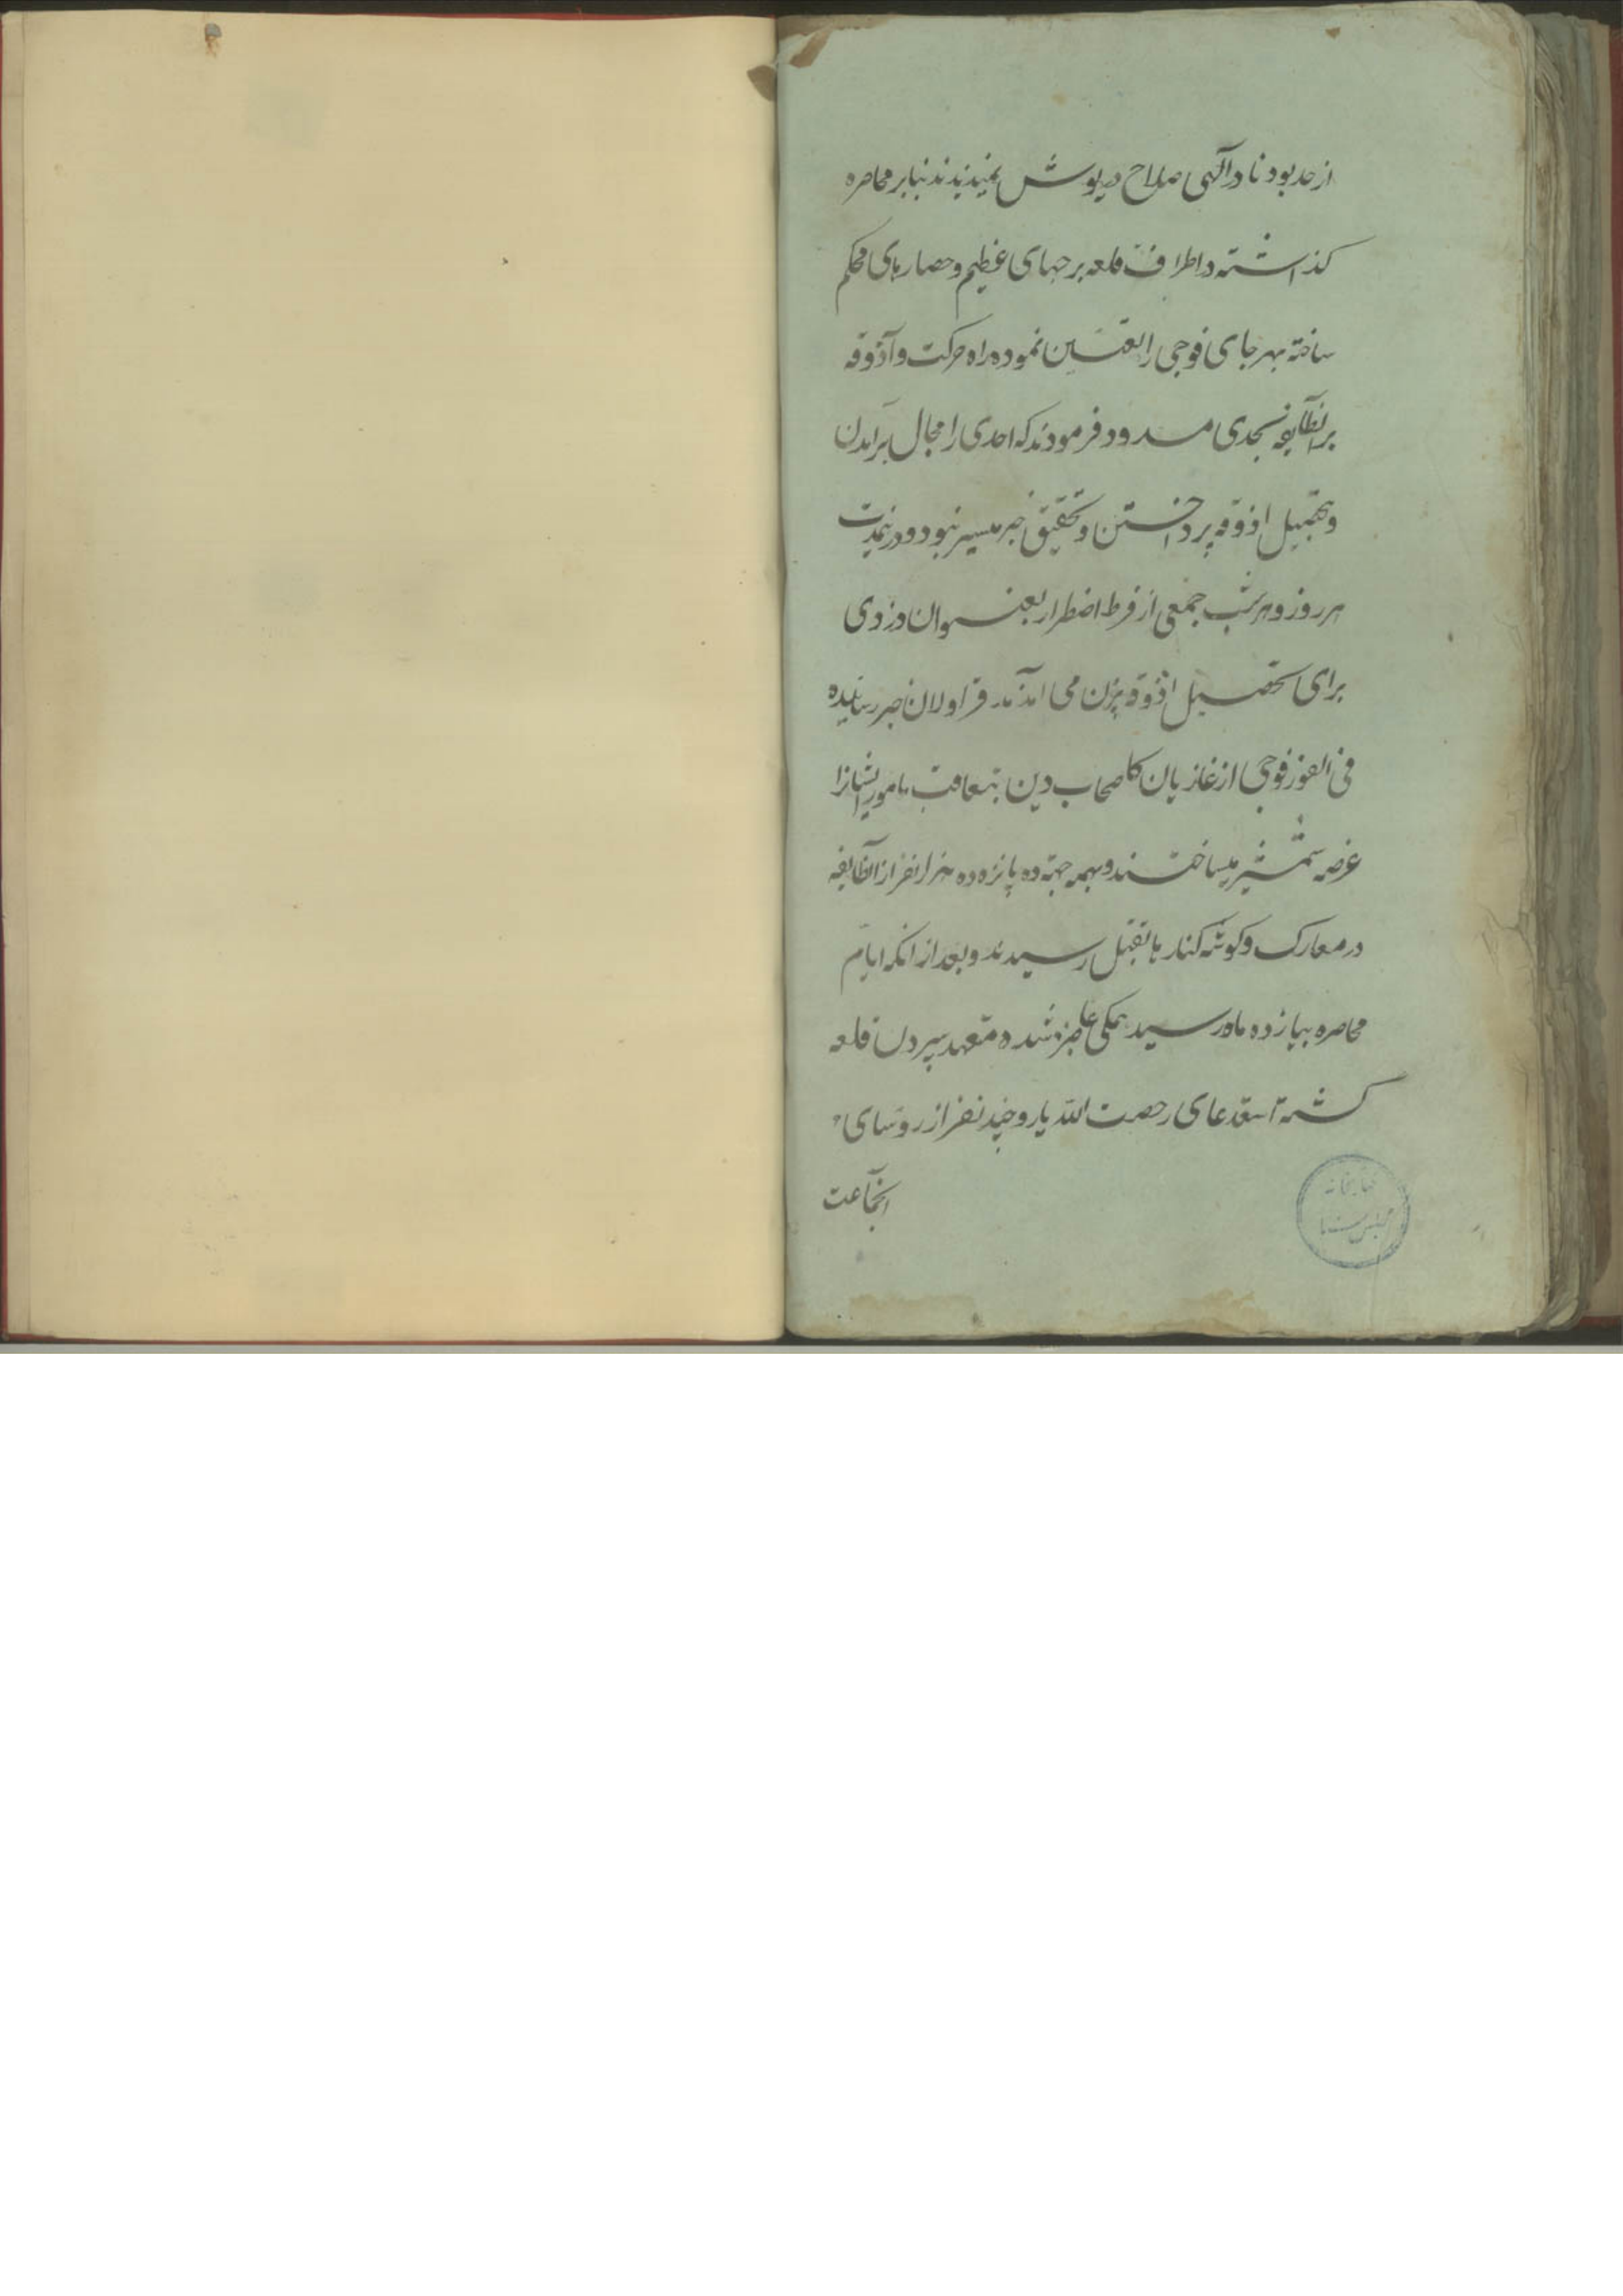 از حد بود نادر الهی صلاح در یوش نمیدیدند بنابر محاصره
کذاشته و اطراف قلعه برجهای عظیم و حصارهای محکم
ساخته بهر جای فوجی را تعین نموده راه حرکت و آذوقه
بر انطآیفه بنحدی مسدود فرمودند که احدی را مجال برآمدن
و بتحصیل اذوقه پرداختن و تحقیق خبر میسر نبود و در نمدت
هر روز و هر شب جمعی از فرط اضطرار بعنوان دزدی
برای تحصیل اذوقه بیرون می امدند قراولان خبر رسانیده
فی الفور فوجی از غازیان کاصحاب دین بتعاقب مامور ایشانرا
عرضه شمشیر میساختند و بهمه جهة ده پانزده هزار نفر از انطایفه
در معارک و کوشه کنارها بقتل رسیدند و بعد از انکه ایام
محاصره بیازده ماه رسید همکی عاجز شده متعهد سپردن قلعه
کشته استدعای رخصت الله یار و چند نفر از روسای
انجماعت
کتابخانه
مجلس سنا